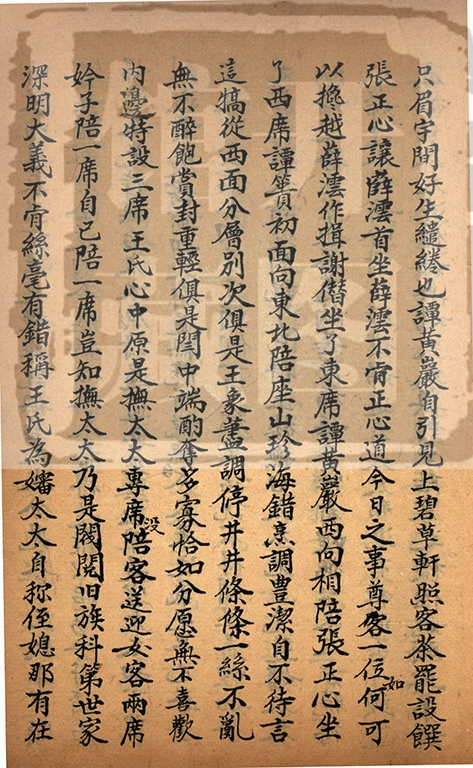 只眉宇間好生繾綣也譚黃巖自引見上碧草軒照客茶罷設饌
張正心讓薛澐首坐薛澐不肯正心道今日之事尊客一位如何可
以攙越薛澐作揖謝僣坐了東席譚黃巖西向相陪張正心坐
了西席譚簣初面向東北陪座山珍海錯烹調豊潔自不待言
這犒從西面分層別次俱是王象藎調停井井條條一絲不亂
無不醉飽賞封重輕俱是閏中端酌奪多寡恰如分愿無不喜歡
內邊特設三席王氏心中原是撫太太專席沒陪客送迎女客兩席
妗子陪一席自己陪一席豈知撫太太乃是閥閱旧族科第世家
深明大義不肯絲毫有錯稱王氏為嬸太太自称侄媳那有在